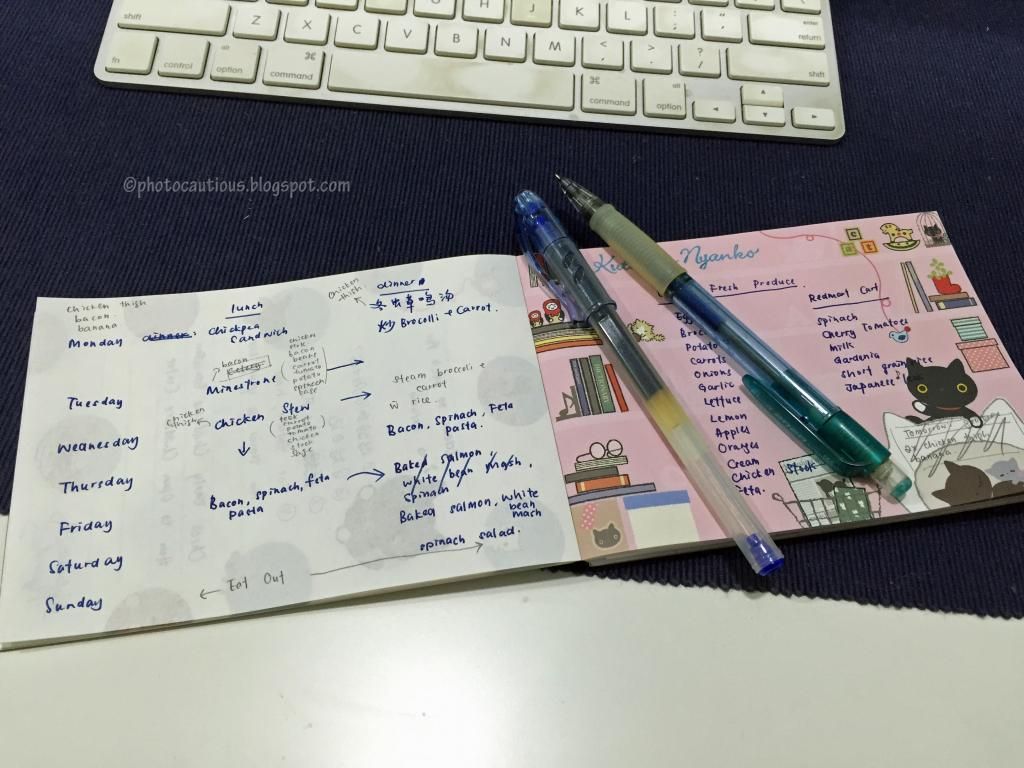 shift Z X C V B N M < , > . ? / enter return
J K L : ; " '
fn control alt option ⌘ command ⌘ command alt option shift
©photocautious.blogspot.com
Chicken thigh
bacon
banana
lunch
Chicken thigh
dinner
Monday
dinner: Chickpea Sandwich
冬虫草鸡汤
炒 Brocolli + Carrot.
bacon
Tuesday
Minestrone
chicken
stock
bacon
beans
carrot
tomato
potato
spinach
base
steam broccoli +
carrot
w rice.
Wednesday
Chicken thigh
Chicken Stew
carrot
potato
tomato
chicken
stock
Bacon, spinach, Feta
pasta.
Thursday
Bacon, spinach, feta
pasta
Baked salmon,
white bean mash,
spinach
Friday
Baked salmon, white
bean
mash
Saturday
spinach salad.
Sunday
Eat Out
Nyanko
c a t
Fresh Produce
Potato
Carrots
Onions
Garlic
Lettuce
Lemon
Apples
Oranges
Cream
Chicken Stock
Redmart Cart
Spinach
Cherry Tomatoes
Milk
Gardenia
Short grain rice
Japanese
Tomorrow
chicken thigh
banana